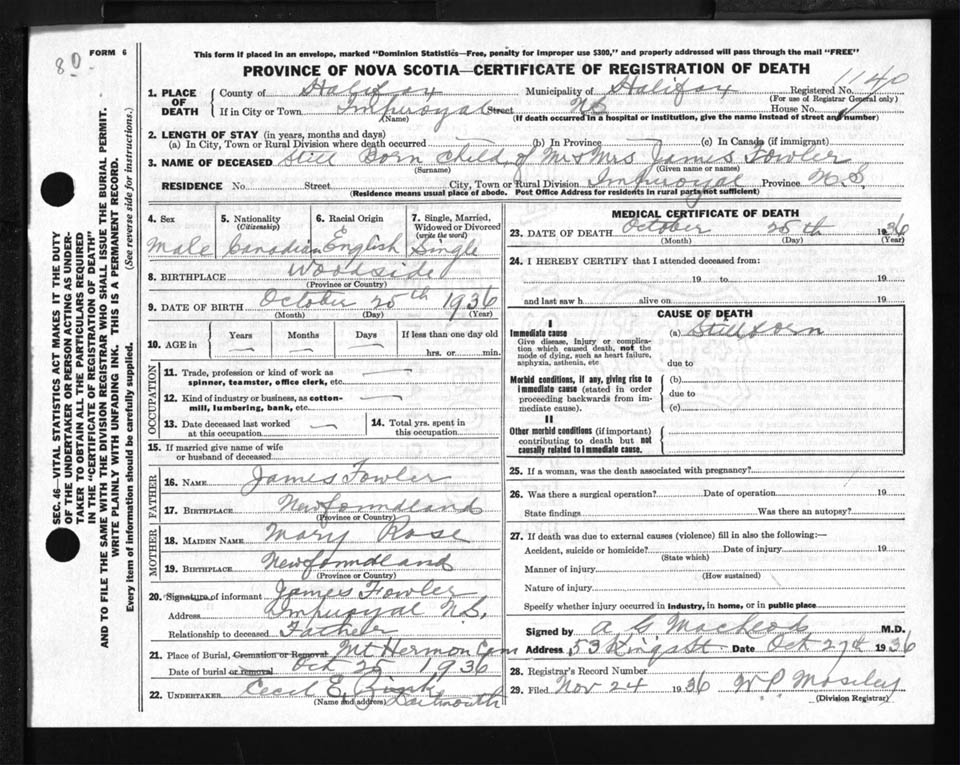 FORM 6
80
This form if placed in an envelope, marked "Dominion Statistics—Free, penalty for improper use $300," and properly addressed will pass through the mail "FREE"
PROVINCE OF NOVA SCOTIA—CERTIFICATE OF REGISTRATION OF DEATH
1140
1. PLACE OF DEATH
County of Halifax Municipality of Halifax Registered No.
(For use of Registrar General only)
If in City or Town Imperoyal Street NS House No.
(Name) (If death occurred in a hospital or institution, give the name instead of street and number)
2. LENGTH OF STAY (in years, months and days)
(a) In City, Town or Rural Division where death occurred (b) In Province (c) In Canada (if immigrant)
3. NAME OF DECEASED Still Born Child of Mr & Mrs James Fowler
(Surname) (Given name or names)
RESIDENCE No. Street City, Town or Rural Division Imperoyal Province N.S.
(Residence means usual place of abode. Post Office Address for residents in rural parts not sufficient)
4. Sex
Male
5. Nationality
(Citizenship)
Canadian
6. Racial Origin
English
7. Single, Married, Widowed or Divorced
(write the word)
Single
8. BIRTHPLACE Woodside
(Province or Country)
9. DATE OF BIRTH October 25th 1936
(Month) (Day) (Year)
10. AGE in
Years
Months
Days
If less than one day old
hrs. or min.
OCCUPATION
11. Trade, profession or kind of work as
spinner, teamster, office clerk, etc.
12. Kind of industry or business, as cotton-
mill, lumbering, bank, etc.
13. Date deceased last worked
at this occupation
14. Total yrs. spent in
this occupation
15. If married give name of wife
or husband of deceased
FATHER
16. NAME James Fowler
17. BIRTHPLACE Newfoundland
(Province or Country)
MOTHER
18. MAIDEN NAME Mary Rose
19. BIRTHPLACE Newfoundland
(Province or Country)
20. Signature of informant James Fowler
Address Imperoyal N.S.
Relationship to deceased Father
21. Place of Burial, Cremation or Removal Mt Hermon Cem
Date of burial or removal Oct 25 1936
22. UNDERTAKER Cecil E.
Dartmouth
(Name and address)
MEDICAL CERTIFICATE OF DEATH
23. DATE OF DEATH October 25th 1936
(Month) (Day) (Year)
24. I HEREBY CERTIFY that I attended deceased from:
19 to 19
and last saw h alive on 19
CAUSE OF DEATH
I
Immediate cause
Give disease, injury or complica-
tion which caused death, not the
mode of dying, such as heart failure,
asphyxia, asthenia, etc.
(a) Stillborn
due to
Morbid conditions, if any, giving rise to
immediate cause (stated in order
proceeding backwards from im-
mediate cause).
(b)
due to
(c)
II
Other morbid conditions (if important)
contributing to death but not
causally related to immediate cause.
25. If a woman, was the death associated with pregnancy?
26. Was there a surgical operation? Date of operation 19
State findings Was there an autopsy?
27. If death was due to external causes (violence) fill in also the following:—
Accident, suicide or homicide? Date of injury 19
(State which)
Manner of injury
(How sustained)
Nature of injury
Specify whether injury occurred in industry, in home, or in public place
Signed by A G Macleod M.D.
Address 53 Kings St. Date Oct 27th 1936
28. Registrar's Record Number
29. Filed Nov 24 1936 W P Moseley
(Division Registrar)
SEC. 46—VITAL STATISTICS ACT MAKES IT THE DUTY
OF THE UNDERTAKER OR PERSON ACTING AS UNDER-
TAKER TO OBTAIN ALL THE PARTICULARS REQUIRED
IN THE "CERTIFICATE OF REGISTRATION OF DEATH"
AND TO FILE THE SAME WITH THE DIVISION REGISTRAR WHO SHALL ISSUE THE BURIAL PERMIT.
WRITE PLAINLY WITH UNFADING INK. THIS IS A PERMANENT RECORD.
Every item of information should be carefully supplied. (See reverse side for instructions.)